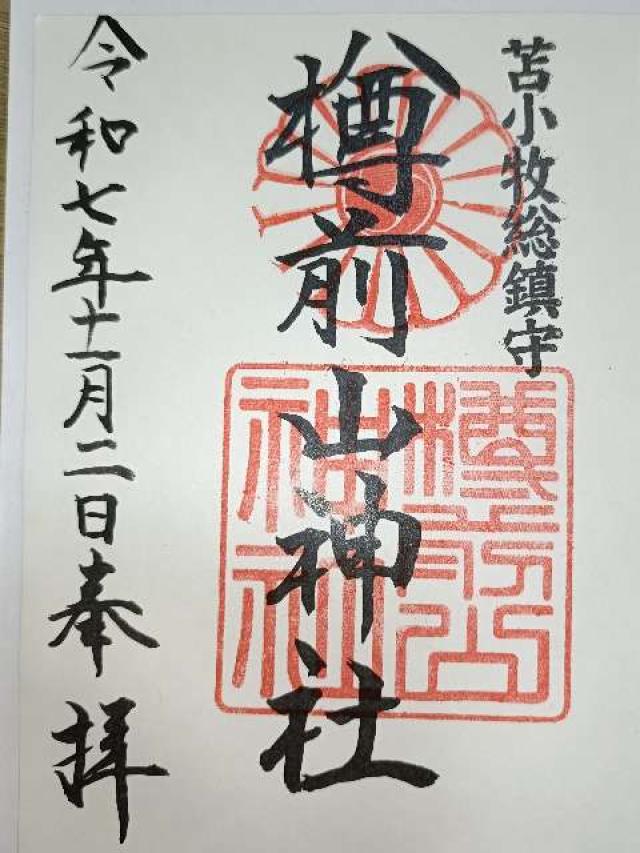 苫小牧総鎮守
樽前山神社
樽前山
神社
令和七年十一月二日奉拝